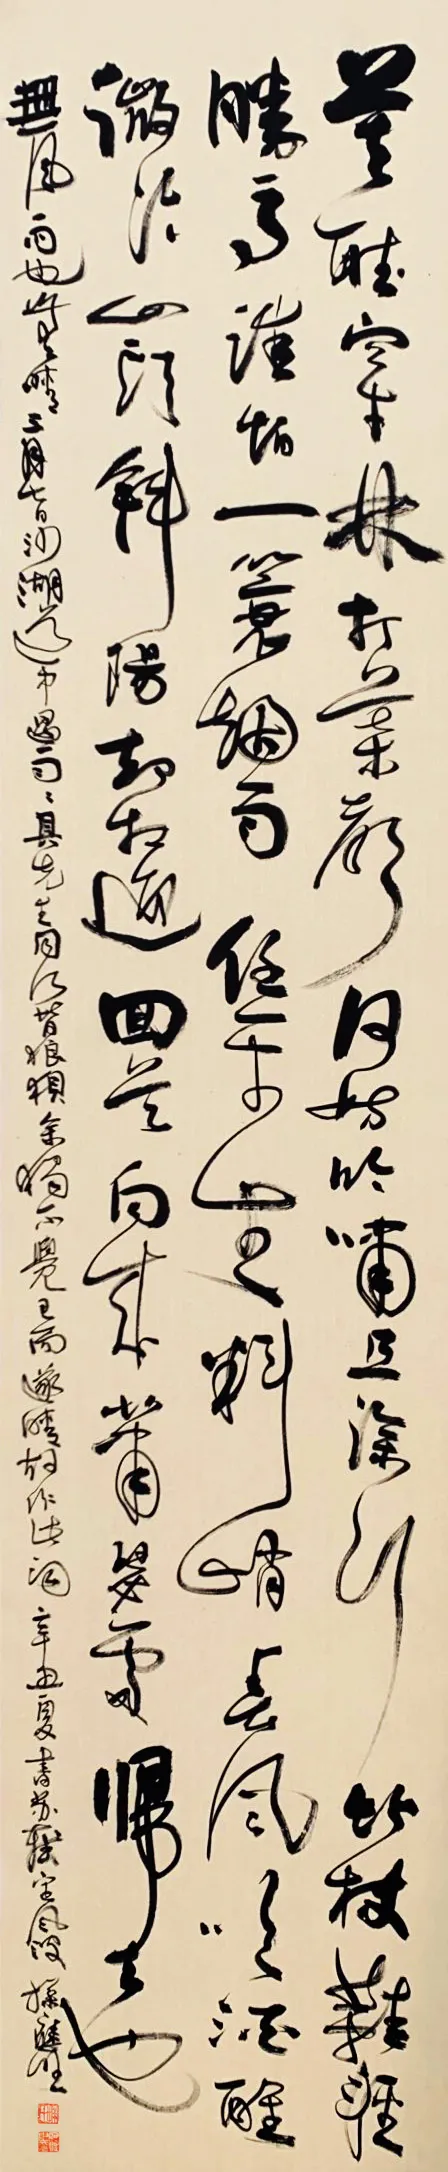 莫聽穿林打葉聲何妨吟嘯且徐行竹杖芒鞋輕
勝馬誰怕一蓑煙雨任平生料峭春風吹酒醒
微冷山頭斜陽却相迎回首向來蕭瑟處歸去也
無風雨也無晴三月七日沙湖道中遇雨〻具先去同行皆狼狽余獨不覺已而遂晴故作此詞辛丑夏書蘇軾定風波